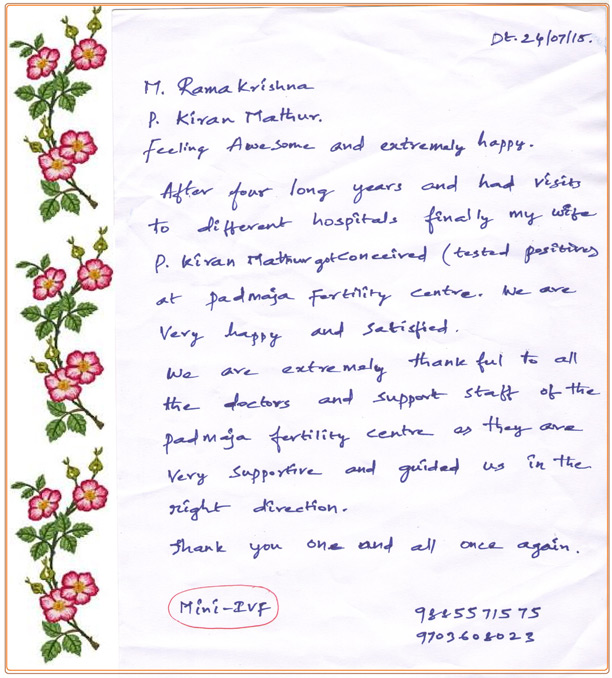 Dt. 24/07/15.
M. Rama Krishna
P. Kiran Mathur.
Feeling Awesome and extremely happy.
After four long years and had visits
to different hospitals finally my wife
P. Kiran Mathur got conceived (tested positive)
at padmaja Fertility Centre. We are
Very happy and satisfied.
We are extremely thankful to all
the doctors and support staff of the
padmaja fertility centre as they are
Very supportive and guided us in the
right direction.
Thank you one and all once again.
Mini-IVF
9885571575
9703608023